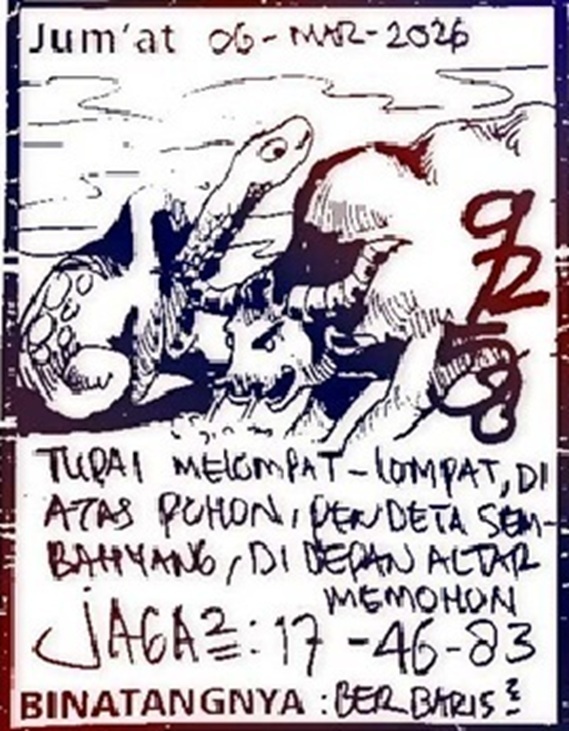 Jum'at 06-MAR-2026
92
58
TUPAI MELOMPAT-LOMPAT, DI
ATAS POHON, PENDETA SEM-
BAHYANG, DI DEPAN ALTAR
MEMOHON
JAGA2=: 17 -46-83
BINATANGNYA : BERBARIS2